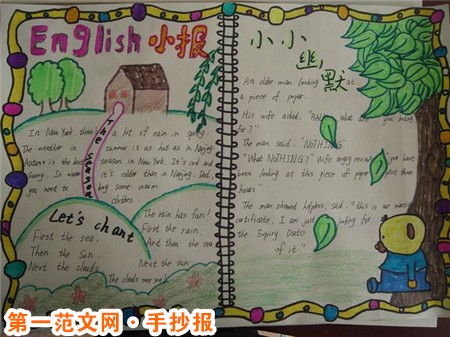 English 小报
In New York, there's a lot of rain in spring.
The weather in summer is as hot as in Nanjing.
Autumn is the best season in New York. It's cool and
sunny. In winter it's colder than Nanjing. Dad,
you need to buy some warm
clothes.
The Season
Let's chant
First the sea,
Then the Sun,
Next the clouds
The rain has fun!
First the rain
And then the sea
Next the sun
The clouds over me
小小幽,默
An older man looking at
a piece of paper.
His wife asked, what are you
for?"
The man said "NoTHING"
"What NoTHING?" Wife angry "you have
been looking at this piece of paper past three
hours"
The man showed helpless, said "this is we
certificate, I am just looking for
the Expiry Date
of it."
第一范文网·手抄报